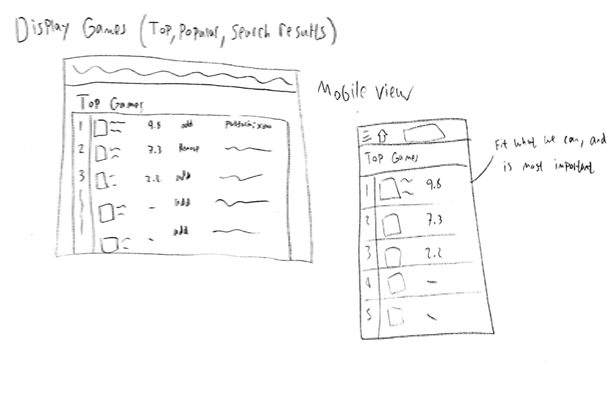 Display Games (Top, Popular, Search results)
Top Games
1 9.8 add platform: xbox
2 7.3 Remove
3 2.2 add
- add
- add
Mobile View
Top Games
1 9.8
2 7.3
3 2.2
4 -
5 -
Fit what we can, and
is most important